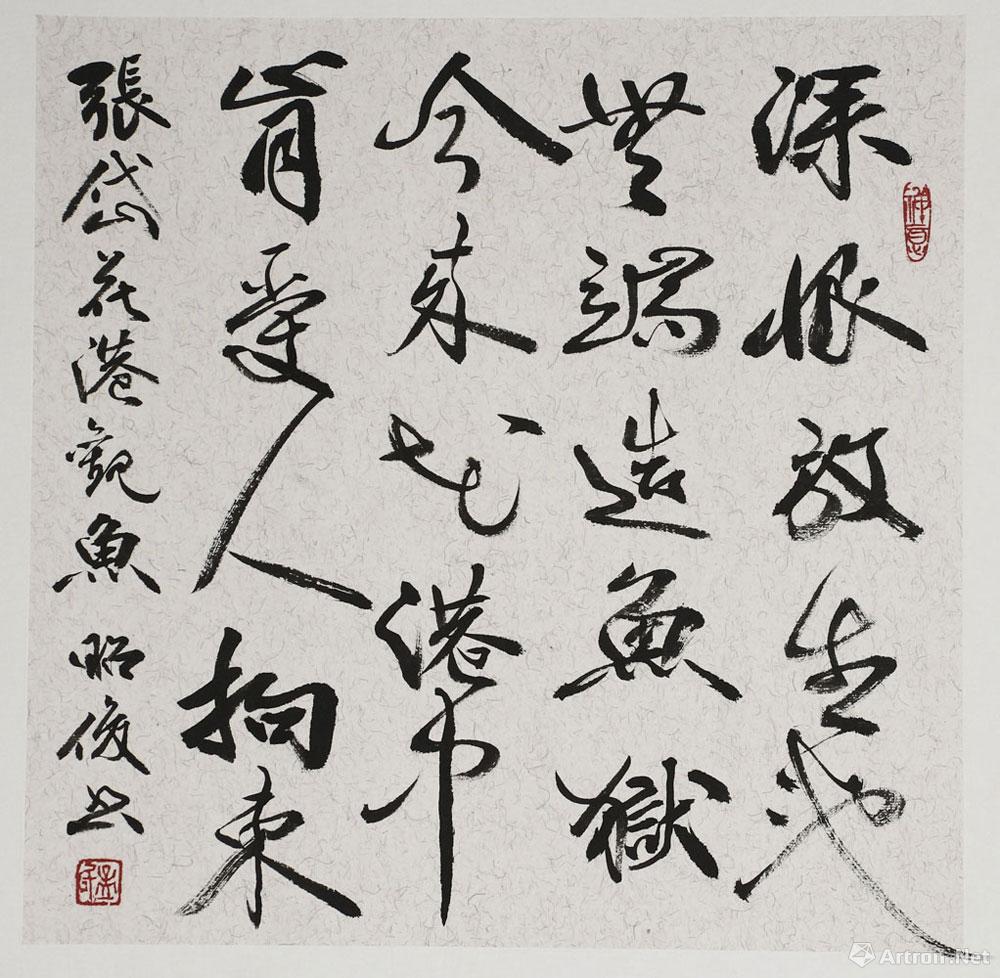 深恨放生池
無端造魚獄
今來花港中
肯受人拘束
張岱花港觀魚 昭俊書
Artron.Net